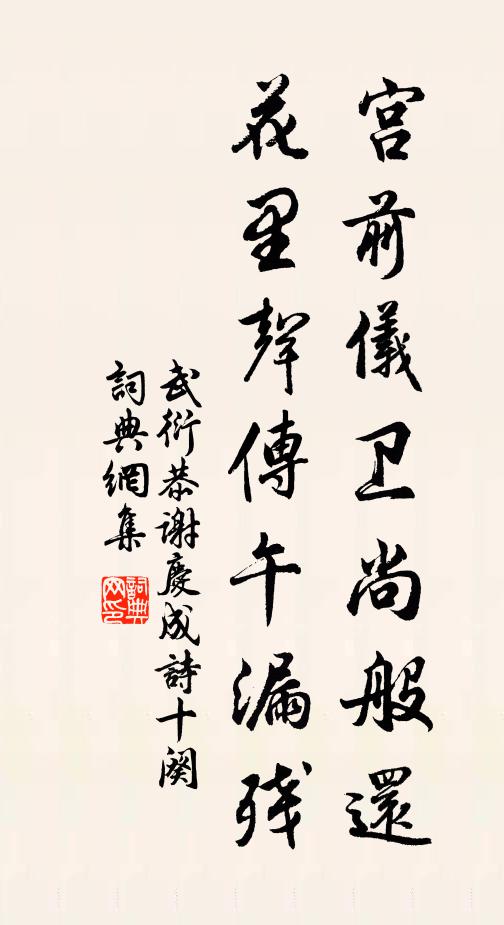 宫前儀卫尚般還
花里聲傳午漏残
武衍恭谢慶成詩十阕
詞典網集
詞典网印